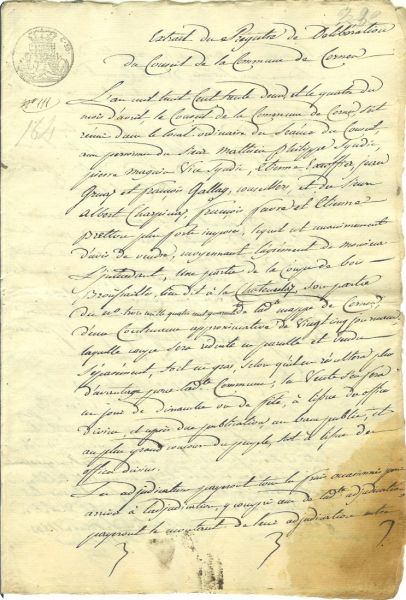 Extrait du Régistre de Déliberation
du Conseil de la Commune de Cornod
N° III
184
L'an mil huit Cent trente deux, et le quatre du
mois d'avril, le Conseil de la Commune de Cornod s'est
réuni dans le local ordinaire des Séances du Conseil,
aux personnes du Sieur Mathieu philippe Syndic,
pierre Magnin Vice Syndic, Etienne jean
et françois Gallay, conseillers, et des Sieurs
Albert françois favre et Etienne
plus forts imposés, lequel est unanimement
d'avis de vendre, moyennant l'agrément de monsieur
L'intendant, une partie de la Coupe de bois
Broussaille, lieu dit à la Châtenaley, son partie
du N° trois mille quatre cent de la dite mappe de Cornod,
d'une Contenance approximative de Vingt cinq journaux,
laquelle coupe Sera réduite en parcelles et vendue
Séparément, soit en gros, selon qu'il en résultera plus
d'avantage pour ladite Commune, la Vente S'en fera
un jour de dimanche ou de fête, à l'issue des offices
divins, et après due publication, au lieu public, et
au plus grand concours du peuple, soit à l'issue des
offices divins.
Les adjudicataires payeront tous les frais occasionnés pour
arriver à l'adjudication, y compris ceux de ladite adjudication
payeront le montant de leur adjudication entre